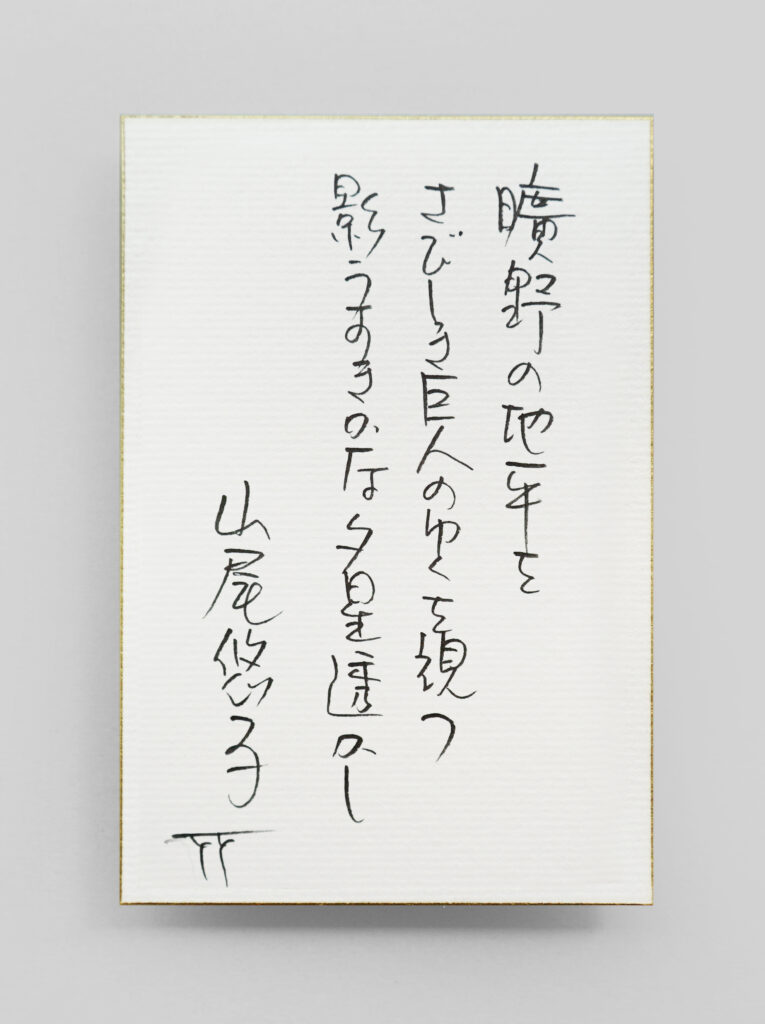 曠野の地平を
さびしき巨人のゆくを視つ
影うすきかな夕星透かし
山尾悠子